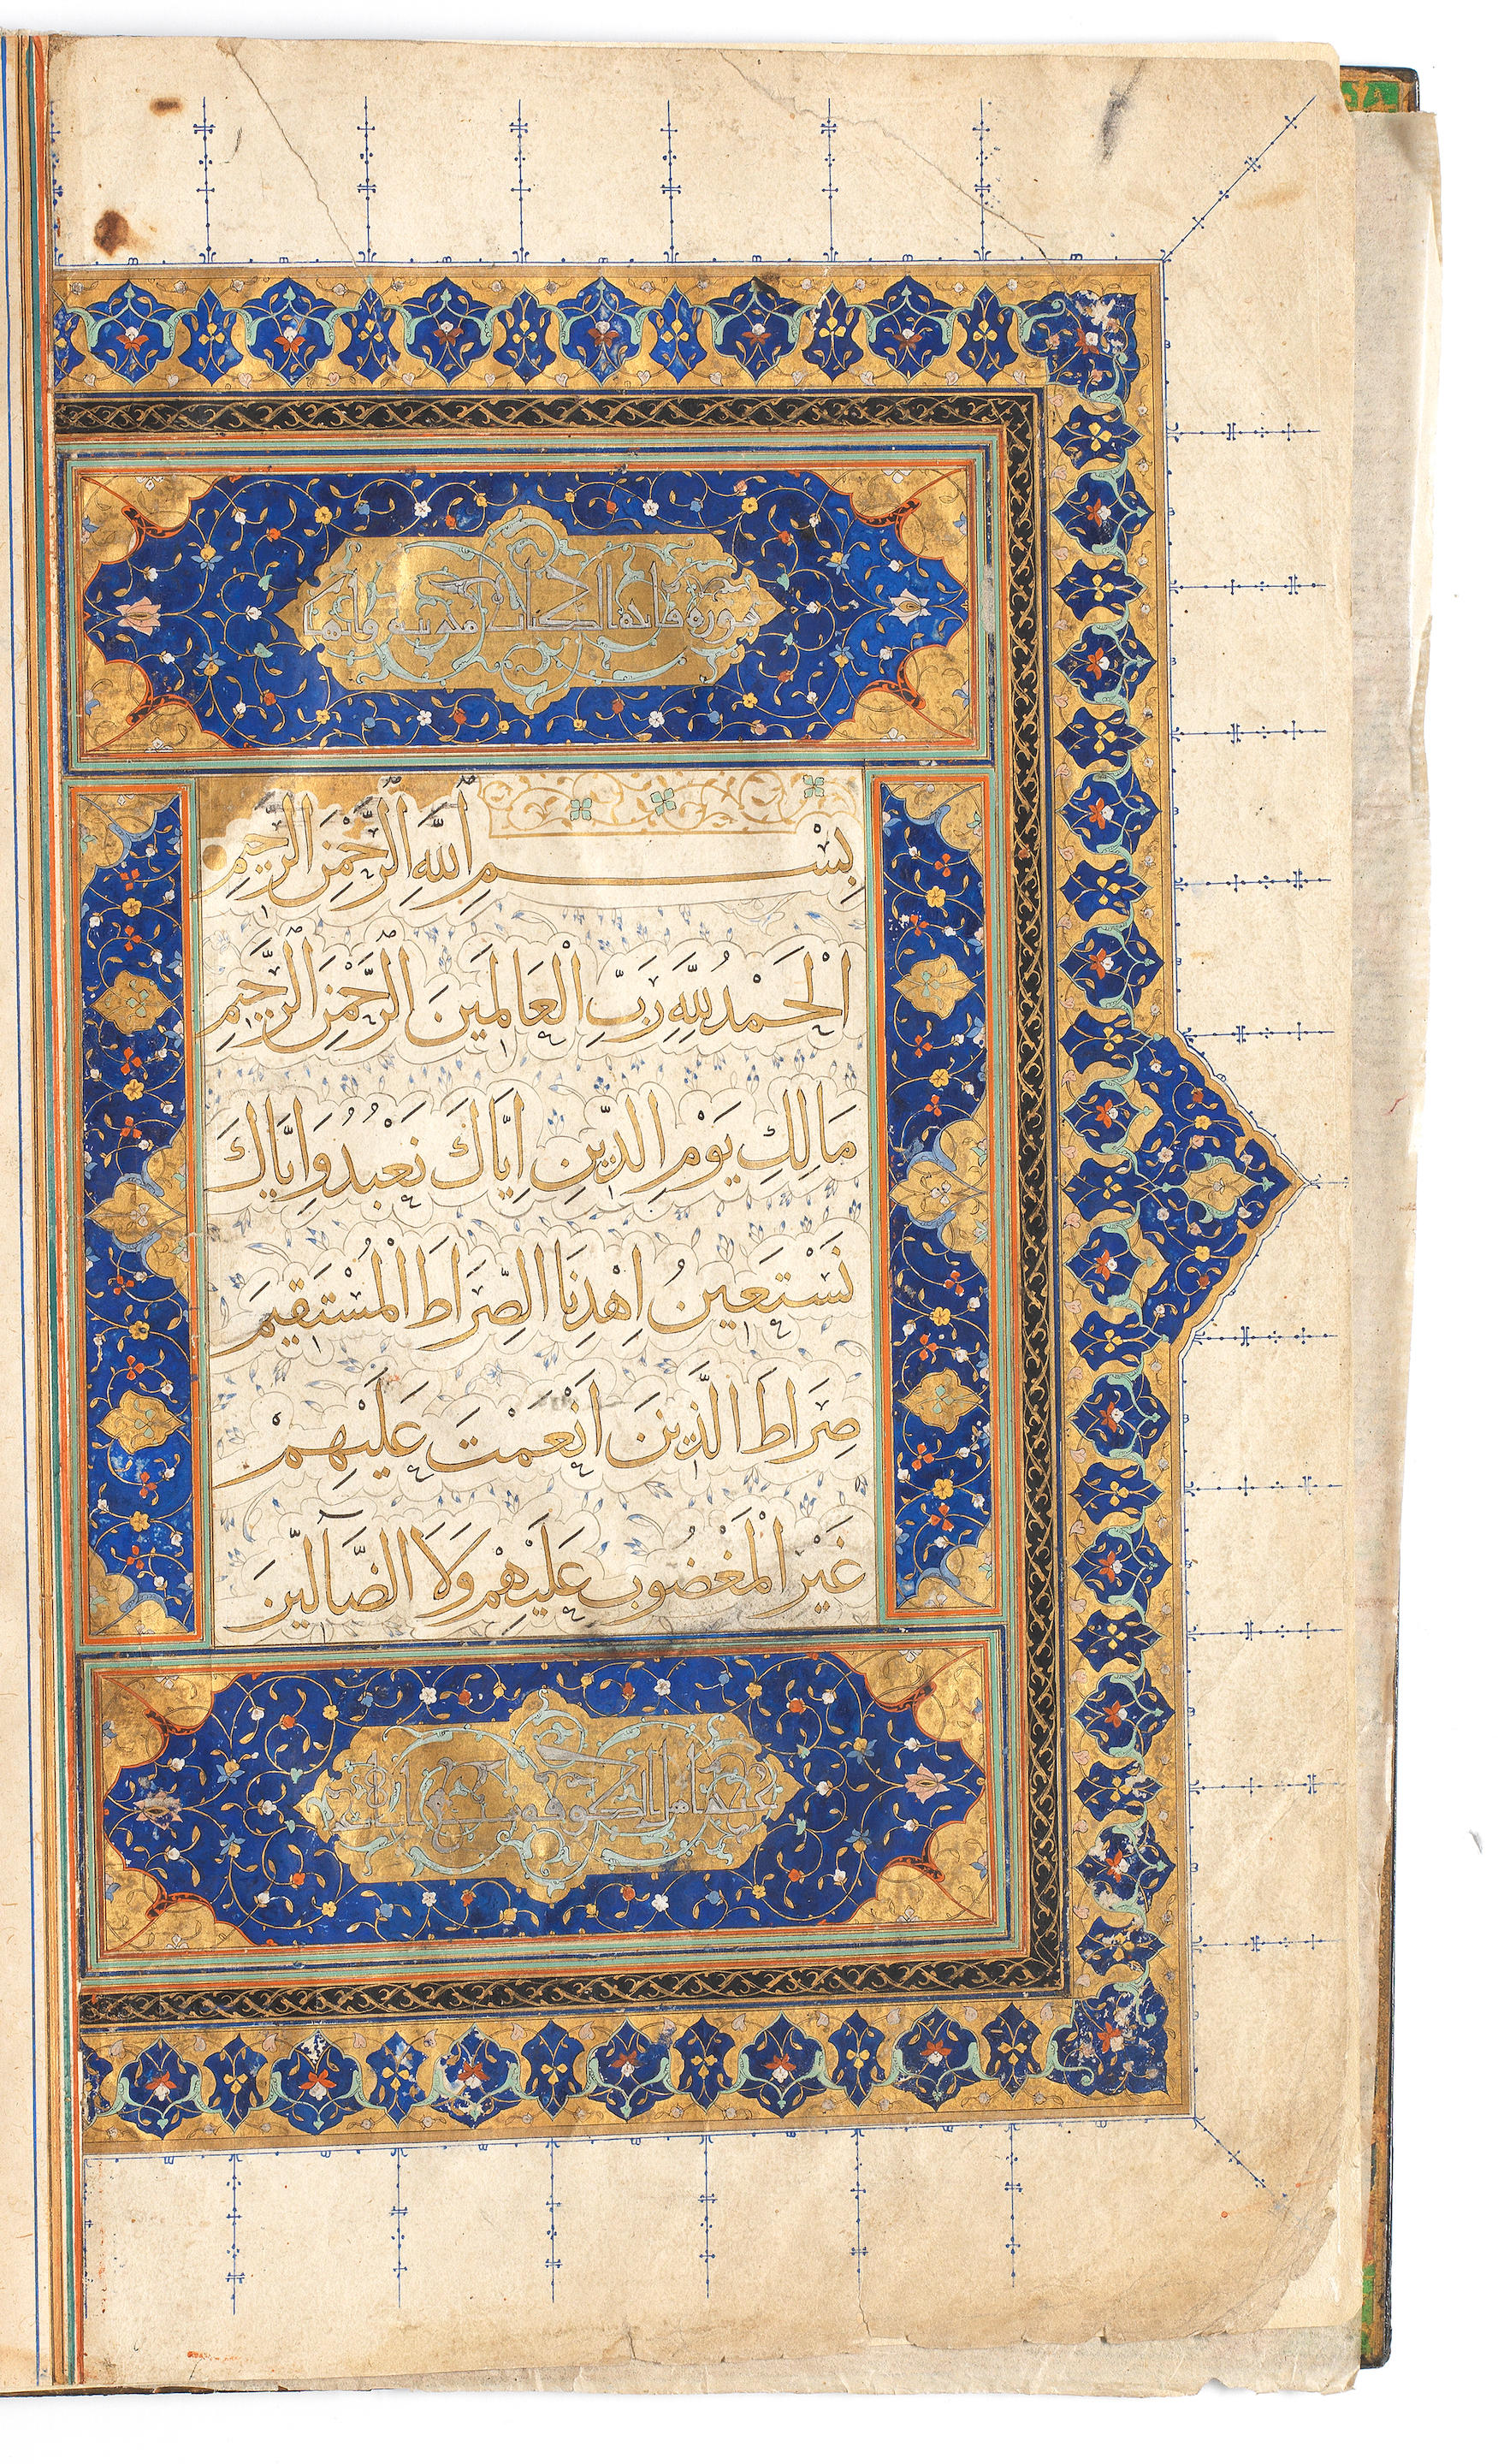 سورة فاتحة الكتاب
بِسْمِ اللَّهِ الرَّحْمٰنِ الرَّحِيمِ
اَلْحَمْدُ لِلَّهِ رَبِّ الْعَالَمِينَ الرَّحْمٰنِ الرَّحِيمِ
مَالِكِ يَوْمِ الدِّينِ اِيَّاكَ نَعْبُدُ وَاِيَّاكَ
نَسْتَعِينُ اِهْدِنَا الصِّرَاطَ الْمُسْتَقِيمَ
صِرَاطَ الَّذِينَ اَنْعَمْتَ عَلَيْهِمْ
غَيْرِ الْمَغْضُوبِ عَلَيْهِمْ وَلَا الضَّآلِّينَ